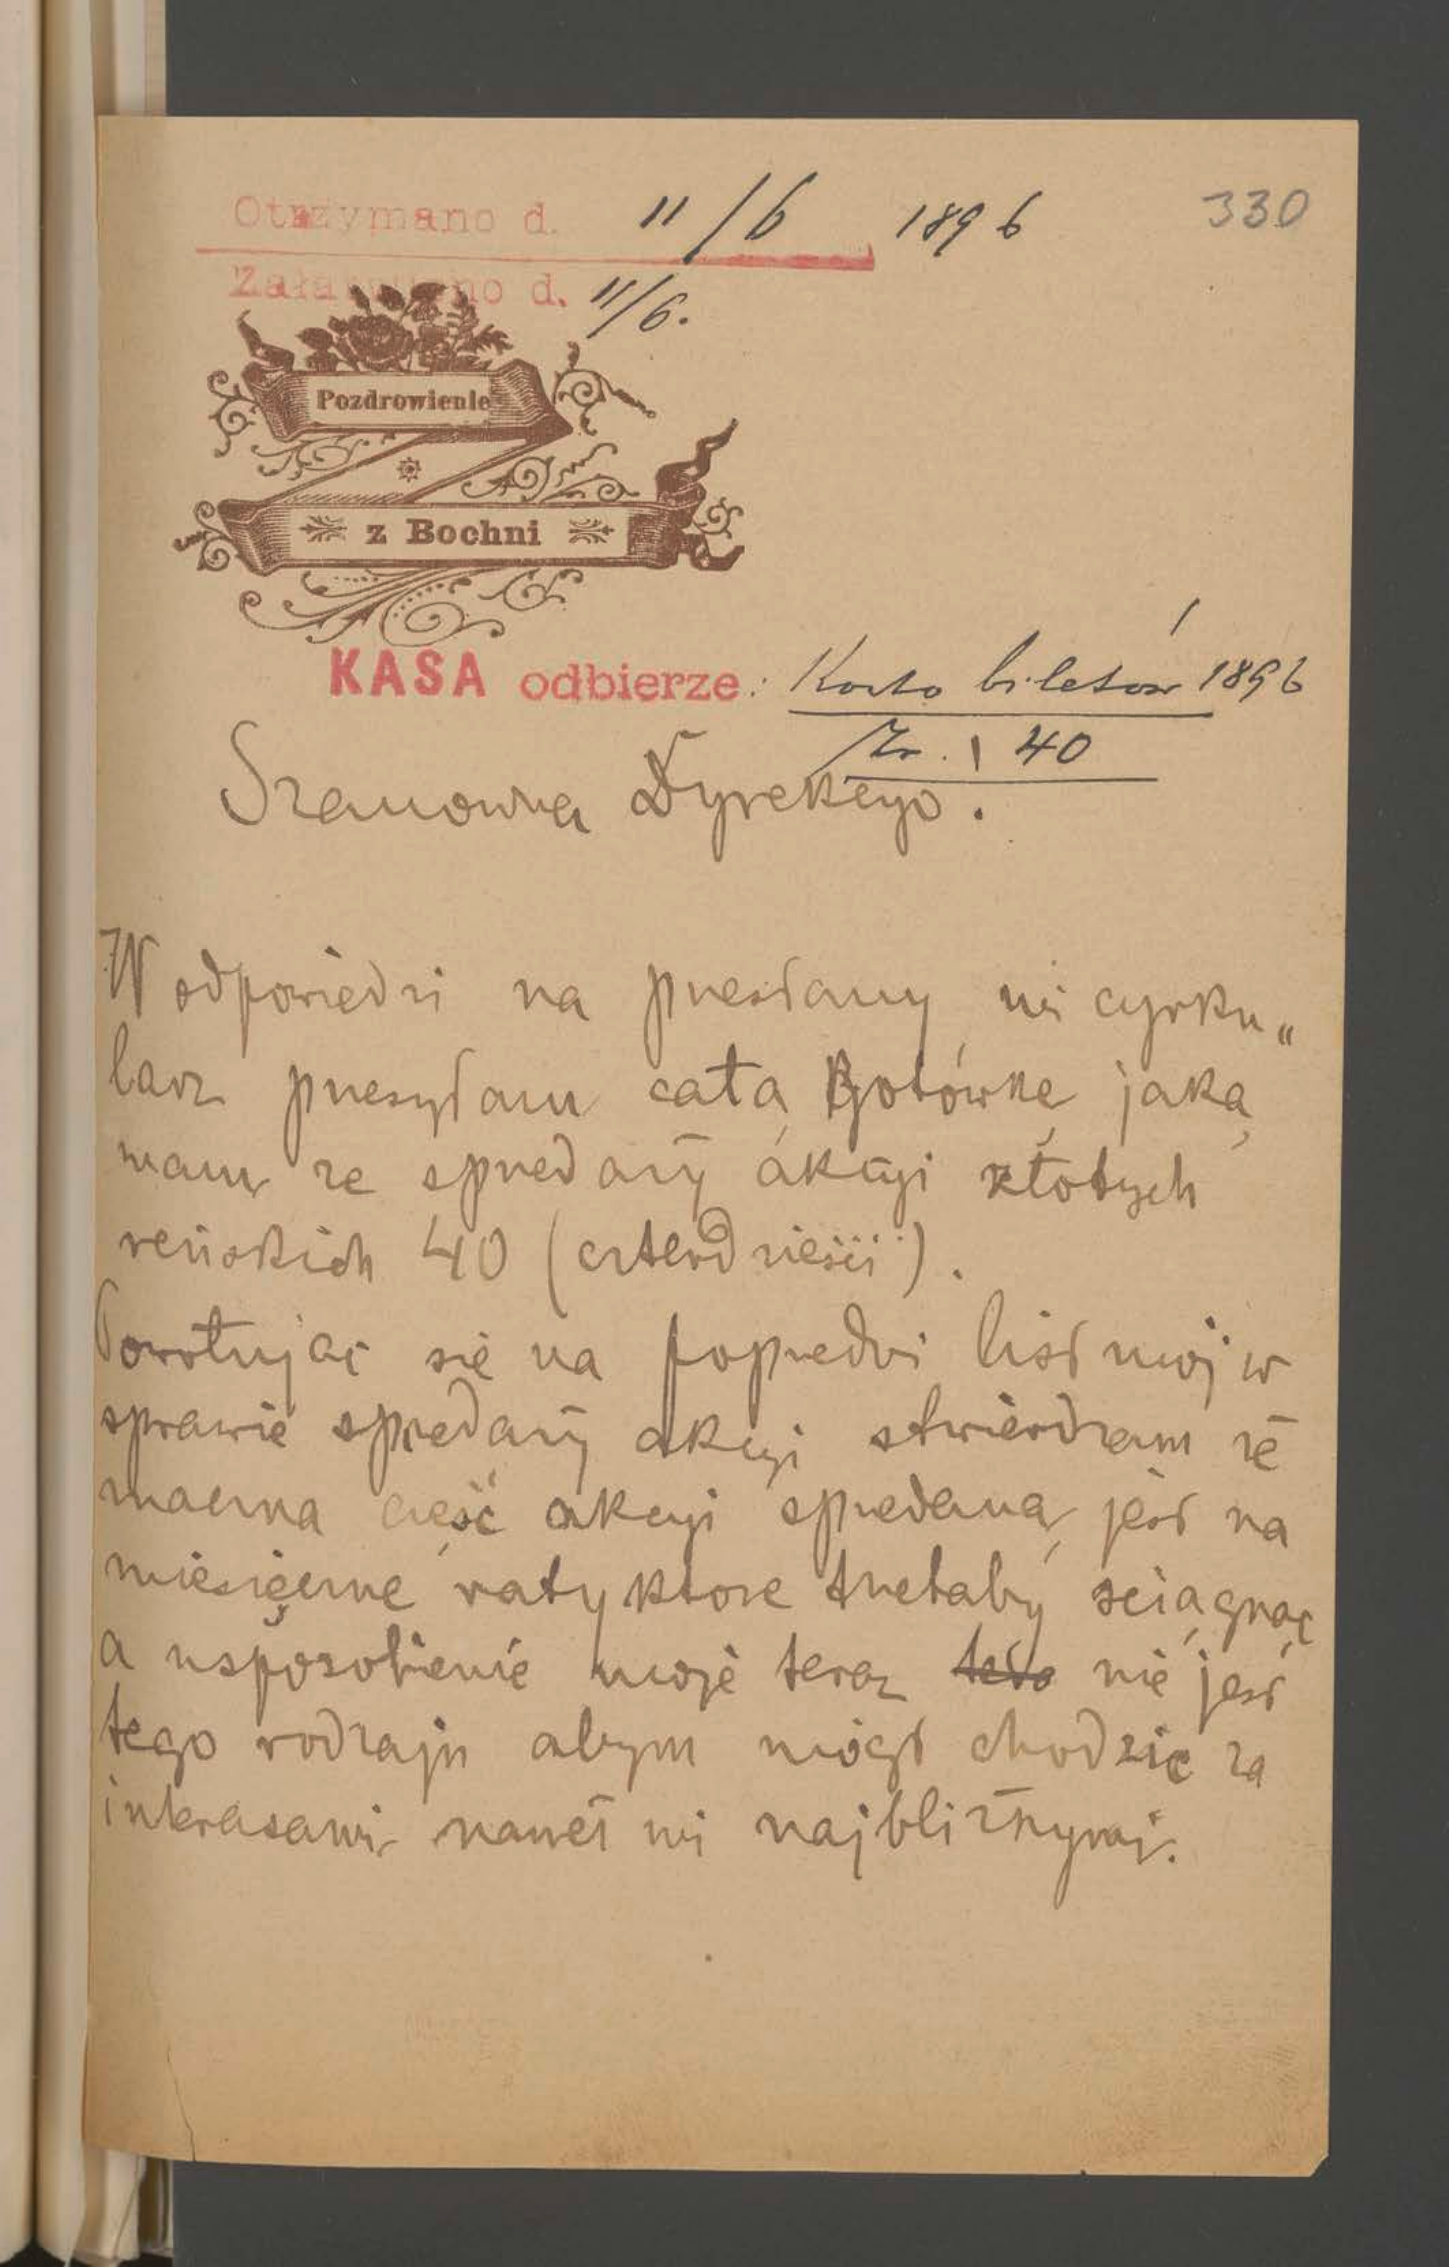 Otrzymano d. 11/6 1896
330
Załatwiono d. 11/6.
Pozdrowienie
z Bochni
KASA odbierze: Konto biletów 1896
Zr. 40
Szanowna Dyrekcyo.
W odpowiedzi na przesłany mi cyrku„
larz przesyłam całą gotówkę jaką
mam ze sprzedaży akcyi złotych
reńskich 40 (czterdzieści).
Powołując się na poprzedni list mój w
sprawie sprzedaży akcyi stwierdzam że
znaczna część akcyi sprzedaną jest na
miesięczne raty które trzebaby ściągnąć
a usposobienie moje teraz nie jest
tego rodzaju abym mógł chodzić za
inkrasami nawet mi najbliższymi.